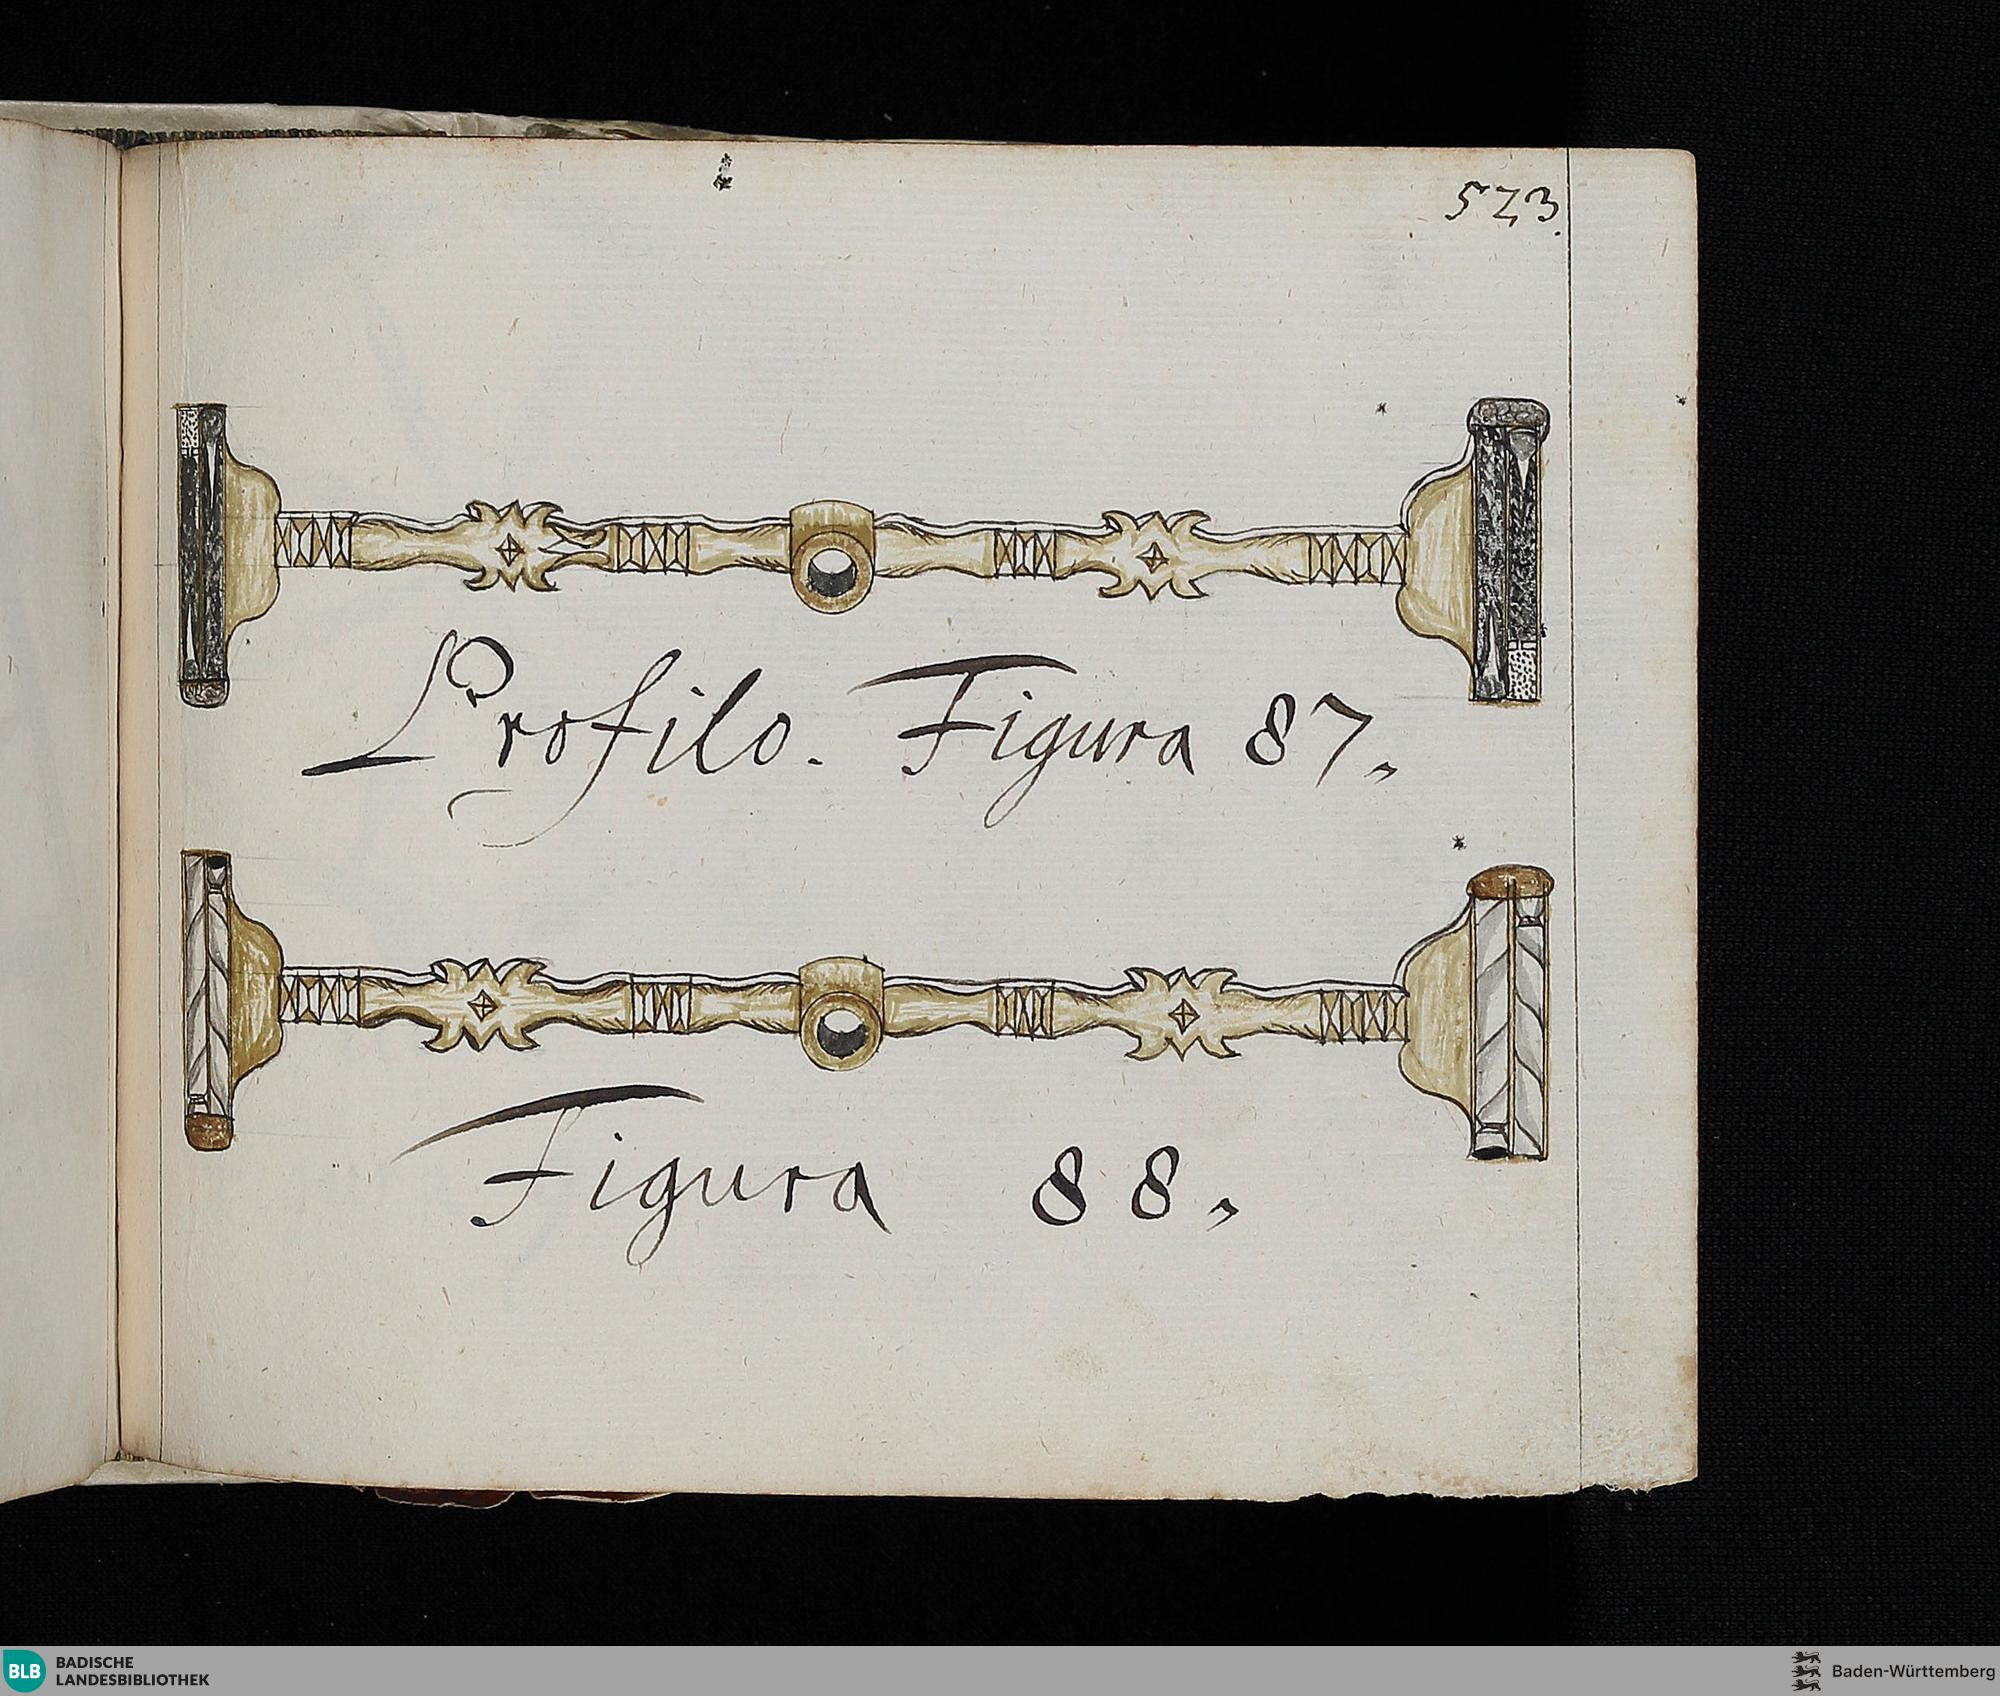 523.
Profilo. Figura 87.
Figura 88.
BLB
BADISCHE
LANDESBIBLIOTHEK
Baden-Württemberg